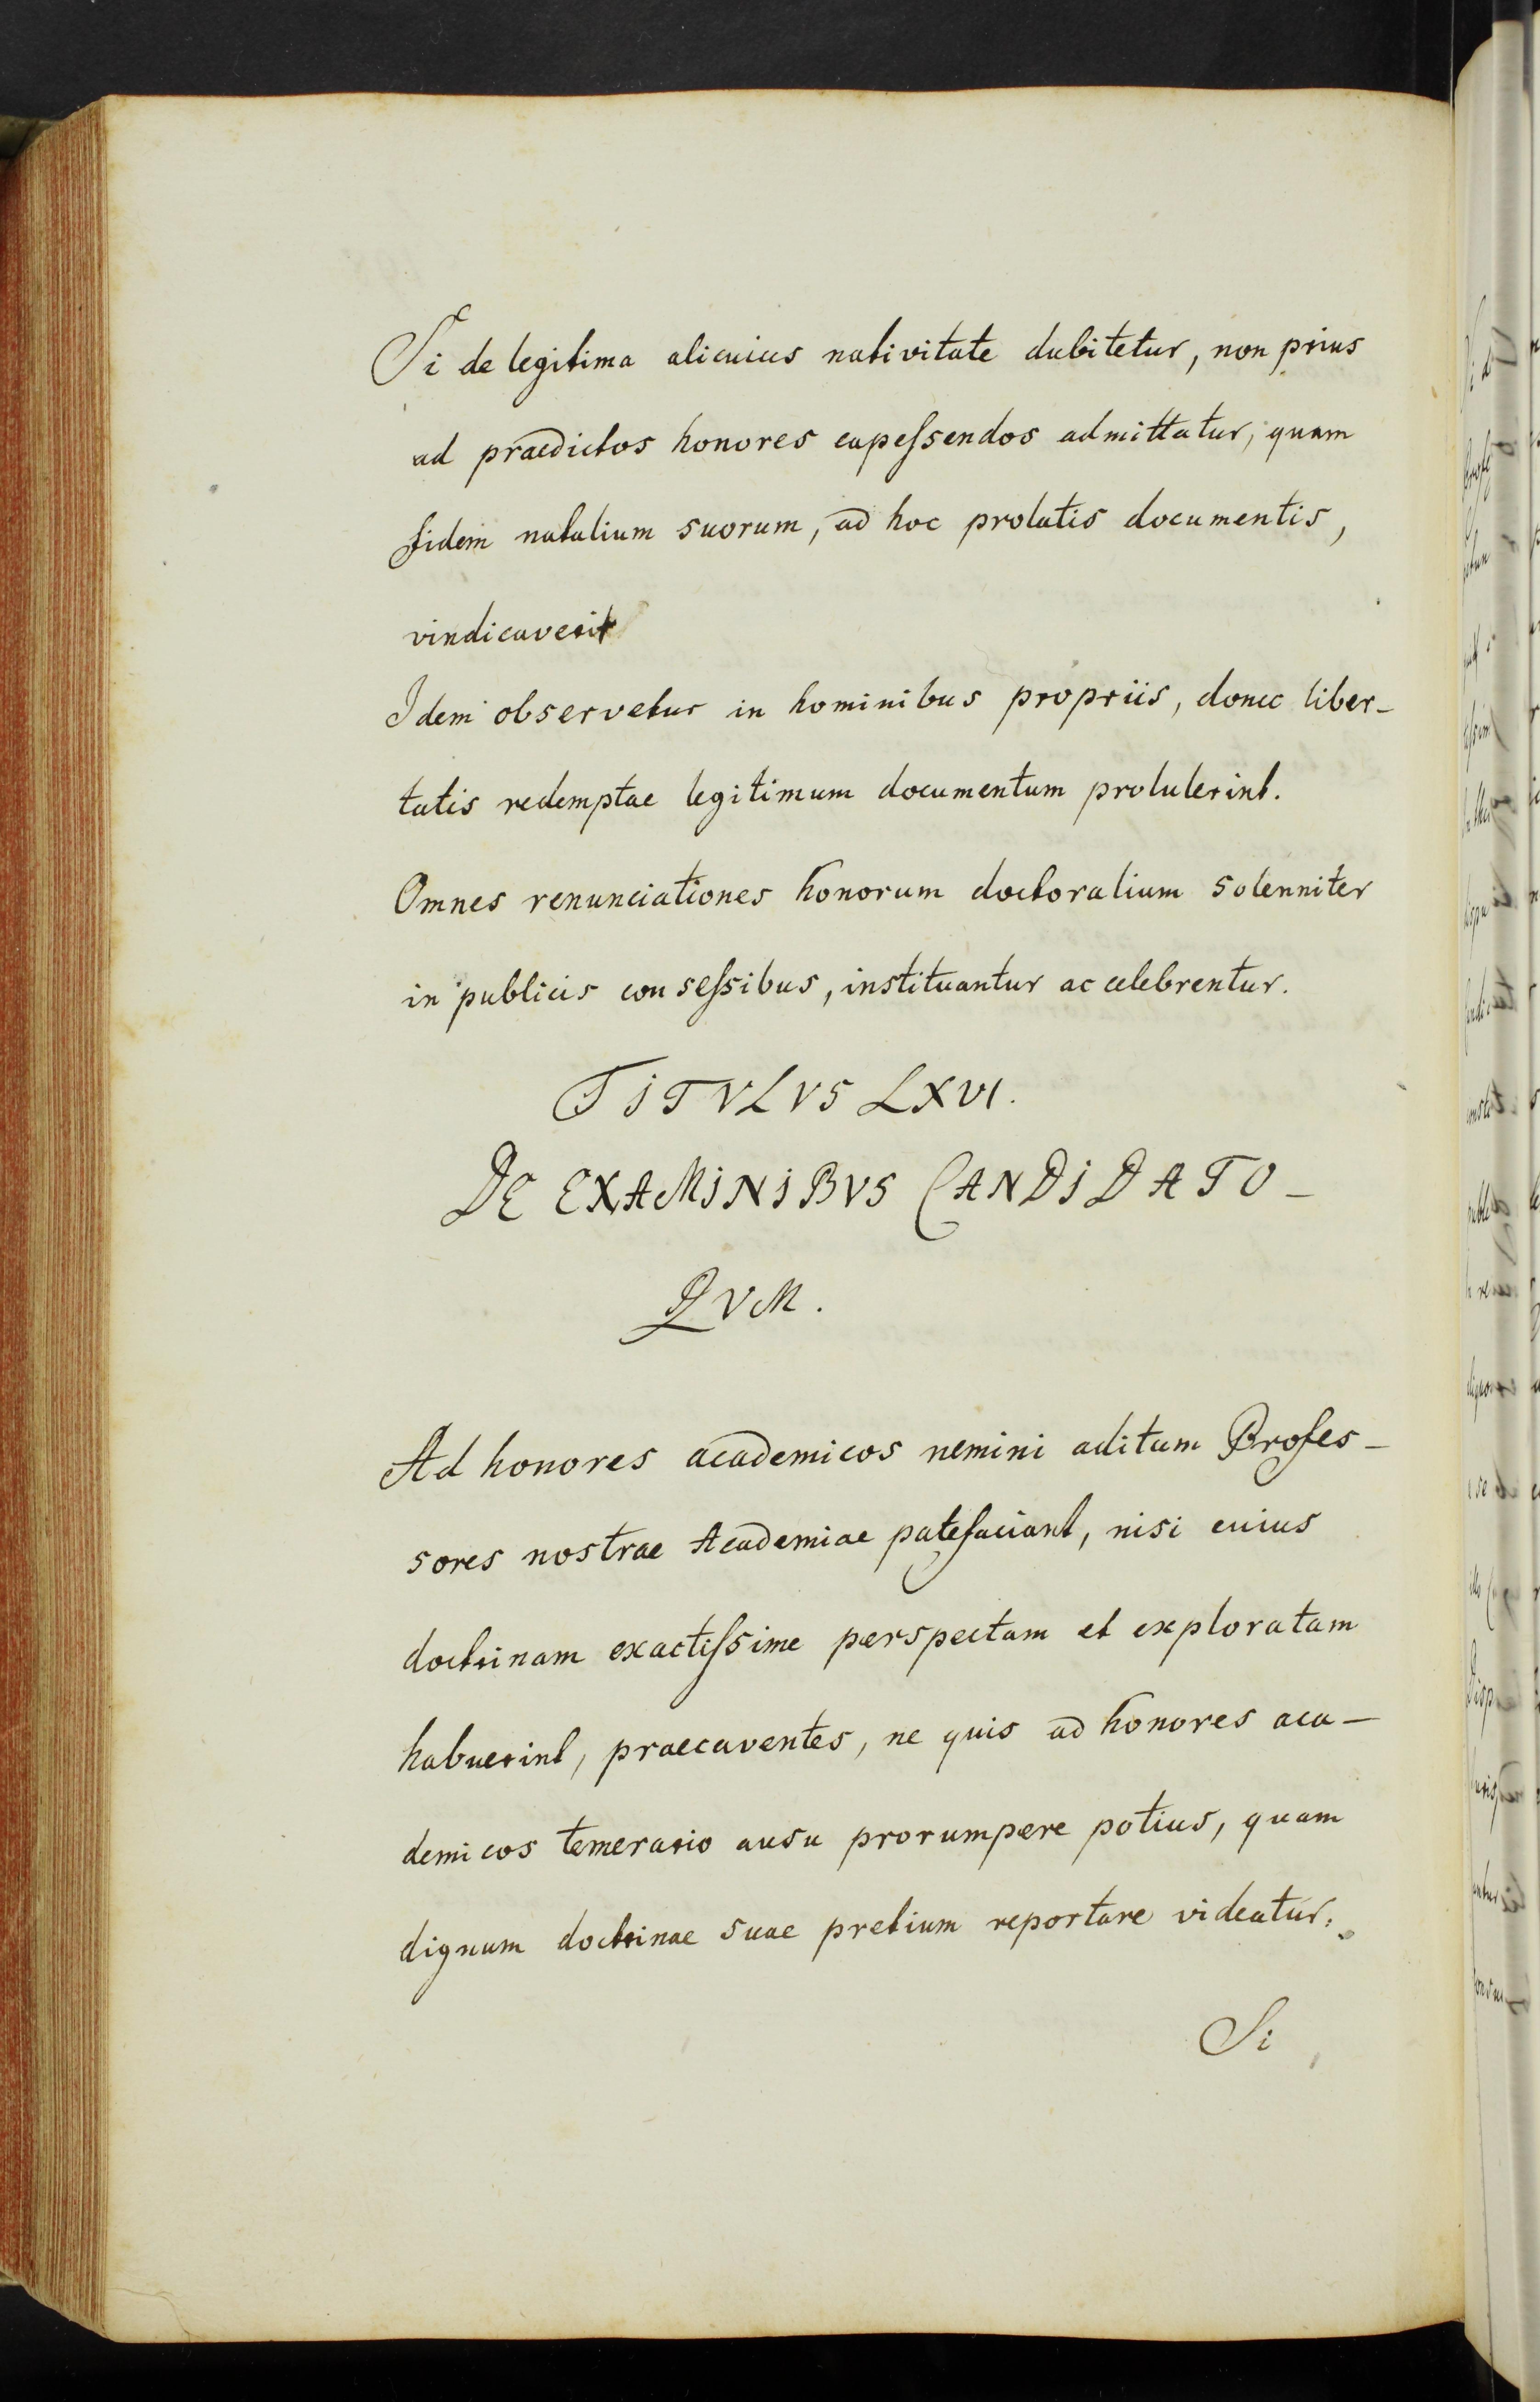 Si de legitima alicuius nativitate dubitetur, non prius
ad praedictos honores capeſsendos admittatur, quam
fidem natalium suorum, ad hoc prolatis documentis,
vindicaverit
Idem observetur in hominibus propriis, donec liber-
tatis redemptae legitimum documentum protulerint.
Omnes renunciationes honorum doctoralium solenniter
in publicis conseſsibus, instituantur ac celebrentur.
TITVLVS LXVI.
DE EXAMINIBVS CANDIDATO-
RVM.
Ad honores academicos nemini aditum Profes-
sores nostrae Academiae patefaciant, nisi cuius
doctrinam exactiſsime perspectam et exploratam
habuerint, praecaventes, ne quis ad honores aca-
demicos temerario ausu prorumpere potius, quam
dignum doctrinae suae pretium reportare videatur.
Si